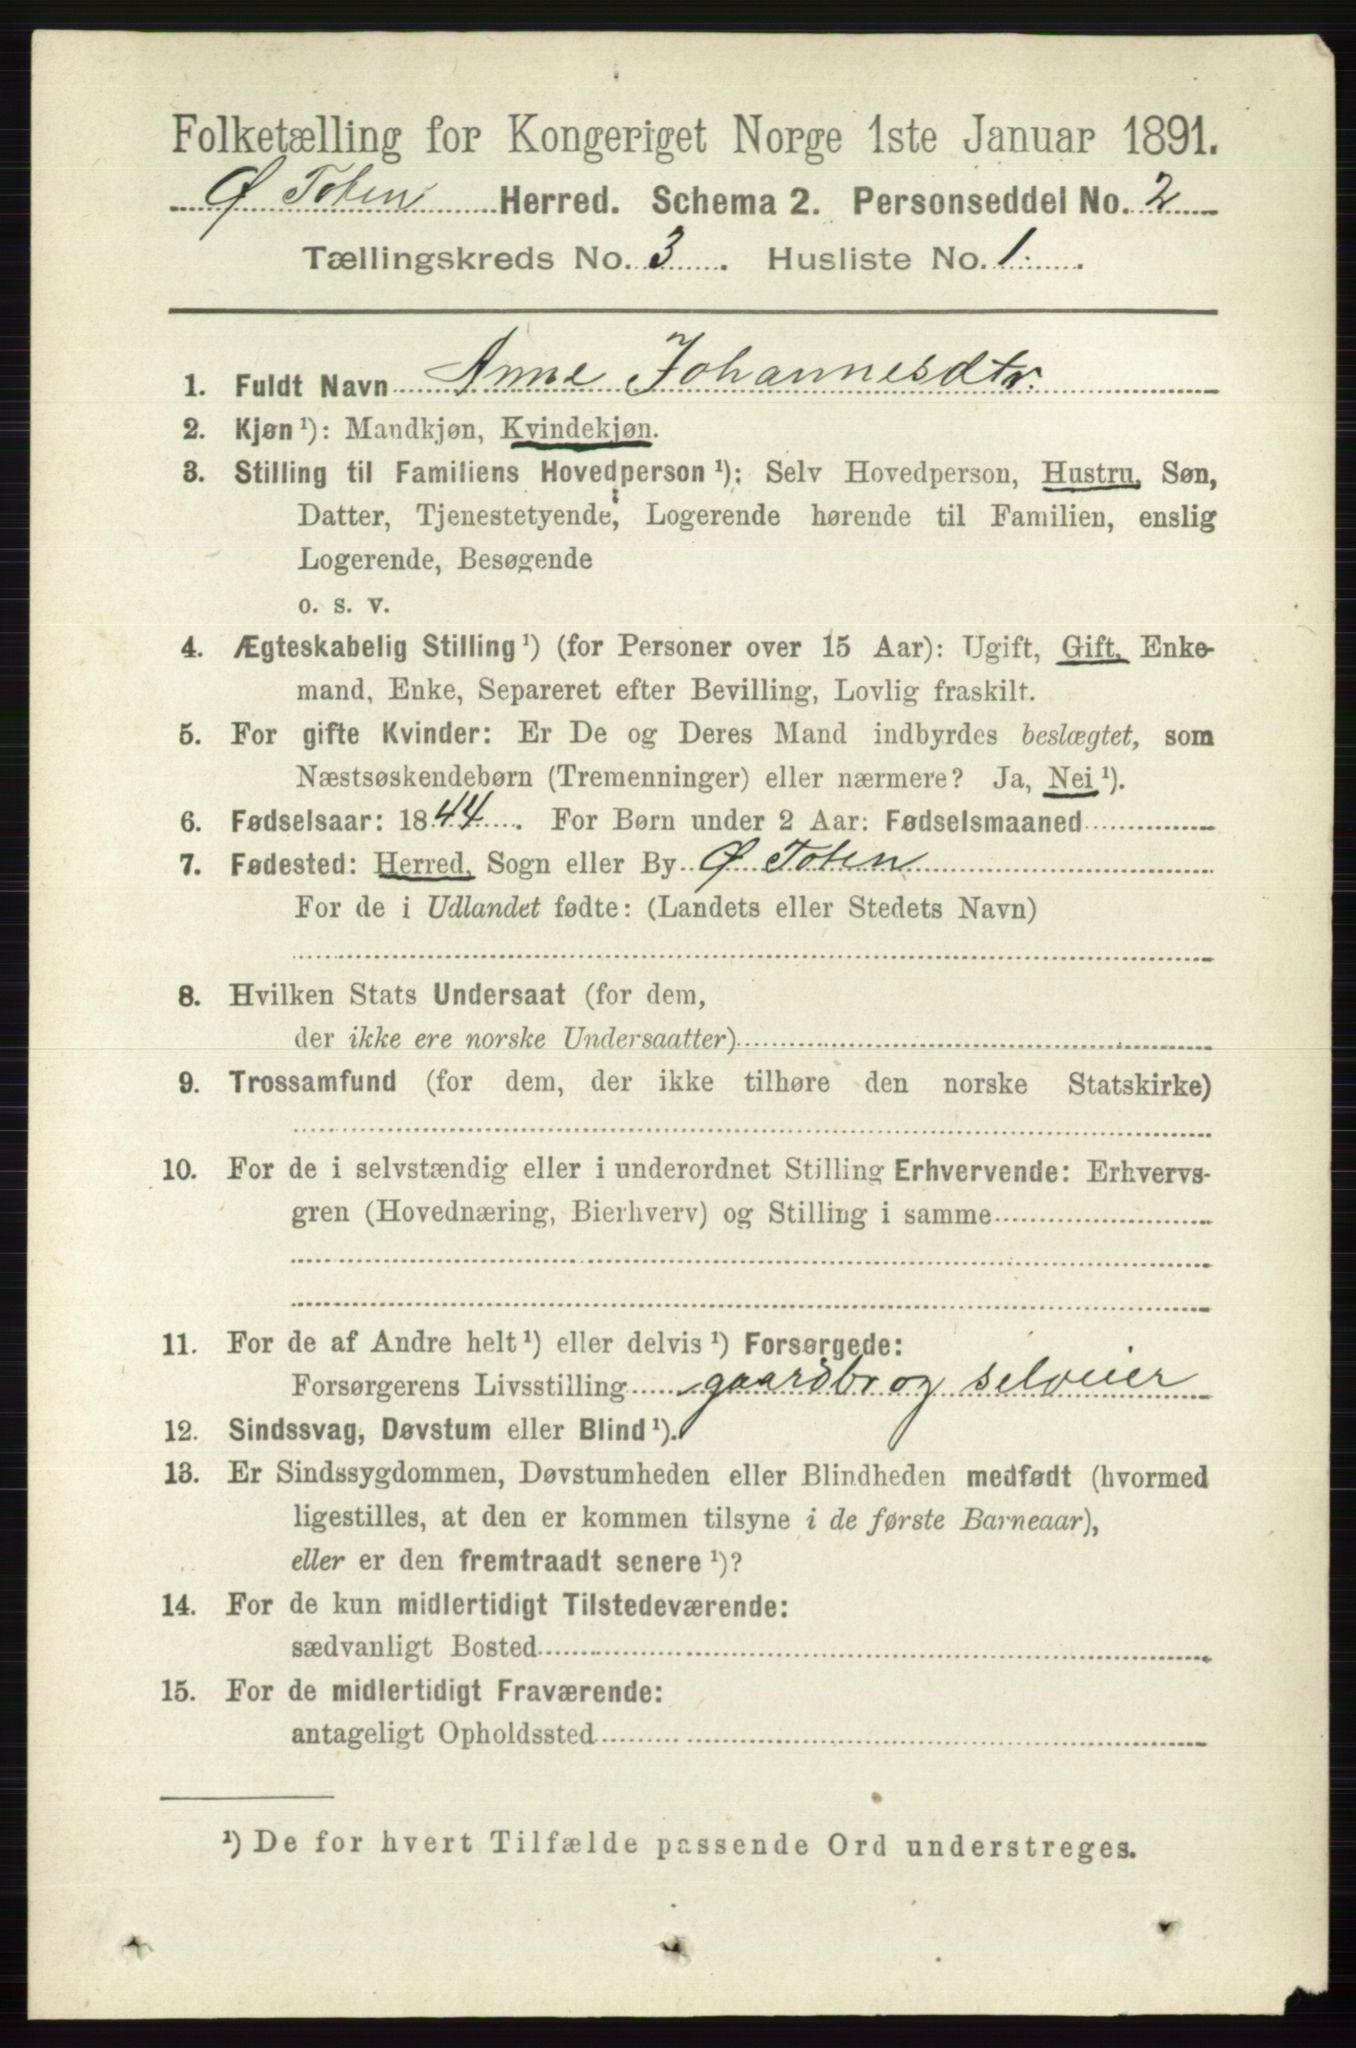 Folketælling for Kongeriget Norge 1ste Januar 1891.
Ø Toten Herred. Schema 2. Personseddel No. 2
Tællingskreds No. 3. Husliste No. 1.
1. Fuldt Navn Anne Johannesdtr.
2. Kjøn ¹): Mandkjøn, Kvindekjøn.
3. Stilling til Familiens Hovedperson ¹): Selv Hovedperson, Hustru, Søn,
Datter, Tjenestetyende, Logerende hørende til Familien, enslig
Logerende, Besøgende
o. s. v.
4. Ægteskabelig Stilling ¹) (for Personer over 15 Aar): Ugift, Gift, Enke-
mand, Enke, Separeret efter Bevilling, Lovlig fraskilt.
5. For gifte Kvinder: Er De og Deres Mand indbyrdes beslægtet, som
Næstsøskendebørn (Tremenninger) eller nærmere? Ja, Nei ¹).
6. Fødselsaar: 1844. For Børn under 2 Aar: Fødselsmaaned
7. Fødested: Herred, Sogn eller By Ø Toten
For de i Udlandet fødte: (Landets eller Stedets Navn)
8. Hvilken Stats Undersaat (for dem,
der ikke ere norske Undersaatter)
9. Trossamfund (for dem, der ikke tilhøre den norske Statskirke)
10. For de i selvstændig eller i underordnet Stilling Erhvervende: Erhvervs-
gren (Hovednæring, Bierhverv) og Stilling i samme
11. For de af Andre helt ¹) eller delvis ¹) Forsørgede:
Forsørgerens Livsstilling gaardbr og selveier
12. Sindssvag, Døvstum eller Blind ¹).
13. Er Sindssygdommen, Døvstumheden eller Blindheden medfødt (hvormed
ligestilles, at den er kommen tilsyne i de første Barneaar),
eller er den fremtraadt senere ¹)?
14. For de kun midlertidigt Tilstedeværende:
sædvanligt Bosted
15. For de midlertidigt Fraværende:
antageligt Opholdssted
¹) De for hvert Tilfælde passende Ord understreges.